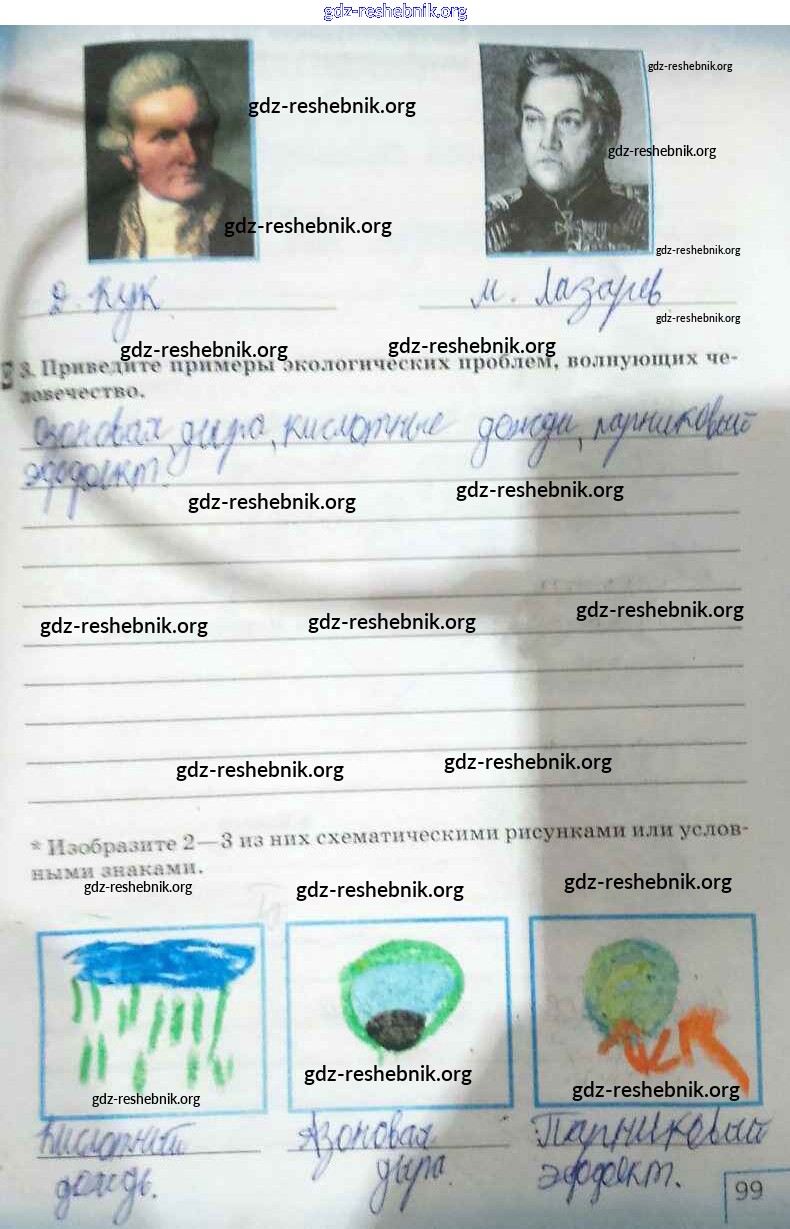 gdz-reshebnik.org
gdz-reshebnik.org
gdz-reshebnik.org
gdz-reshebnik.org
gdz-reshebnik.org
gdz-reshebnik.org
Д. Кук
М. Лазарев
gdz-reshebnik.org
gdz-reshebnik.org
gdz-reshebnik.org
3. Приведите примеры экологических проблем, волнующих че-
ловечество.
Озоновая дыра, кислотные дожди, парниковый
эффект.
gdz-reshebnik.org
gdz-reshebnik.org
gdz-reshebnik.org
gdz-reshebnik.org
gdz-reshebnik.org
gdz-reshebnik.org
gdz-reshebnik.org
* Изобразите 2—3 из них схематическими рисунками или услов-
ными знаками.
gdz-reshebnik.org
gdz-reshebnik.org
gdz-reshebnik.org
gdz-reshebnik.org
gdz-reshebnik.org
gdz-reshebnik.org
Кислотный
дождь.
Озоновая
дыра.
Парниковый
эффект.
99